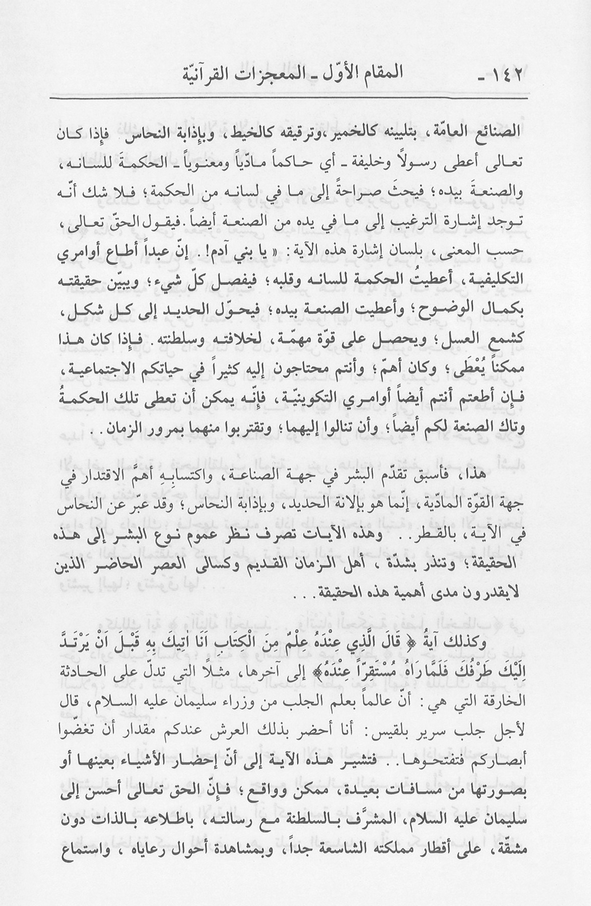 ١٤٢ - المقام الأوّل - المعجزات القرآنيّة
الصنائع العامّة، بتليينه كالخمير،وترقيقه كالخيط، وبإذابة النحاس فإذا كان
تعالى أعطى رسولاً وخليفة - أي حاكماً مادّياً ومعنوياً - الحكمةَ للسانه،
والصنعةَ بيده؛ فيحثّ صراحةً إلى ما في لسانه من الحكمة؛ فلا شك أنّه
توجد إشارة الترغيب إلى ما في يده من الصنعة أيضاً.فيقول الحقّ تعالى،
حسب المعنى، بلسان إشارة هذه الآية: « يا بني آدم!. إنّ عبداً أطاع أوامري
التكليفية، أعطيتُ الحكمة للسانه وقلبه؛ فيفصل كلّ شيء؛ ويبيّن حقيقته
بكمال الوضوح؛ وأعطيت الصنعة بيده؛ فيحوّل الحديد إلى كل شكل،
كشمع العسل؛ ويحصل على قوة مهمّة، لخلافته وسلطنته. فإذا كان هذا
ممكناً يُعْطَى؛ وكان أهمّ؛ وأنتم محتاجون إليه كثيراً في حياتكم الاجتماعية،
فإن أطعتم أنتم أيضاً أوامري التكوينيّة، فإنّه يمكن أن تعطى تلك الحكمةُ
وتاك الصنعة لكم أيضاً؛ وأن تنالوا إليهما؛ وتقتربوا منهما بمرور الزمان..
هذا، فأسبق تقدّم البشر في جهة الصناعة، واكتسابه أهمَّ الاقتدار في
جهة القوّة المادّية، إنّما هو بإلانة الحديد، وبإذابة النحاس؛ وقد عبّر عن النحاس
في الآية، بالقطر.. وهذه الآيات تصرف نظر عموم نوع البشر إلى هذه
الحقيقة؛ وتنذر بشدّة ، أهل الزمان القديم وكسالى العصر الحاضر الذين
لايقدرون مدى أهمية هذه الحقيقة...
وكذلك آيةُ ﴿ قَالَ الَّذِي عِنْدَهُ عِلْمٌ مِنَ الْكِتَابِ اَنَا اٰتِيكَ بِهِ قَبْلَ اَنْ يَرْتَدَّ
اِلَيْكَ طَرْفُكَ فَلَمَّارَاٰهُ مُسْتَقِرًّا عِنْدَهُ﴾ إلى آخرها، مثلاً التي تدلّ على الحادثة
الخارقة التي هي: أنّ عالماً بعلم الجلب من وزراء سليمان عليه السلام، قال
لأجل جلب سرير بلقيس: أنا أحضر بذلك العرش عندكم مقدار أن تغضّوا
أبصاركم فتفتحوها.. فتشير هذه الآية إلى أنّ إحضار الأشياء بعينها أو
بصورتها من مسافات بعيدة، ممكن وواقع؛ فإنّ الحق تعالى أحسن إلى
سليمان عليه السلام، المشرَّف بالسلطنة مع رسالته، باطلاعه بالذات دون
مشقّة، على أقطار مملكته الشاسعة جداً، وبمشاهدة أحوال رعاياه ، واستماع